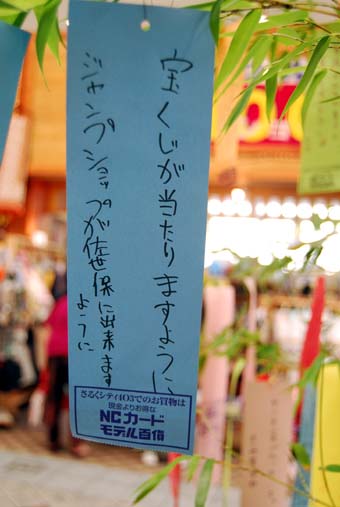 宝くじが当たりますように
ジャンプショップが佐世保に出来ます
ように
さるくシティ403でのお買物は
現金よりお得な
NCカード
モデル百貨